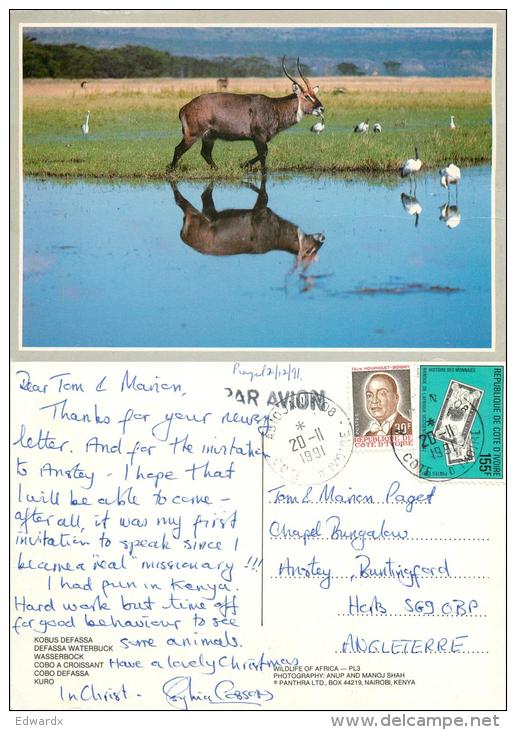 Dear Tom & Marion,
Thanks for your newsy
letter. And for the invitation
to Anstey. I hope that
I will be able to come –
after all, it was my first
invitation to speak since I
became a "real" missionary!!!
I had fun in Kenya.
Hard work but time off
for good behaviour to see
some animals.
Have a lovely Christmas
In Christ -
KOBUS DEFASSA
DEFASSA WATERBUCK
WASSERBOCK
COBO A CROISSANT
COBO DEFASSA
KURO
7/12/91.
PAR AVION
FELIX HOUPHOUET-BOIGNY
POSTES
40F
REPUBLIQUE DE
COTE D'IVOIRE
HISTOIRE DES MONNAIES
REPUBLIQUE DE COTE D'IVOIRE
155F
20-11
1991
COTE D'IVOIRE
20-11
1991
Tom & Marion Paget
Chapel Bungalow
Anstey, Buntingford
Herts SG9 0BP
ANGLETERRE
WILDLIFE OF AFRICA — PL3
PHOTOGRAPHY: ANUP AND MANOJ SHAH
© PANTHRA LTD., BOX 44219, NAIROBI, KENYA
Edwardx
www.delcampe.net